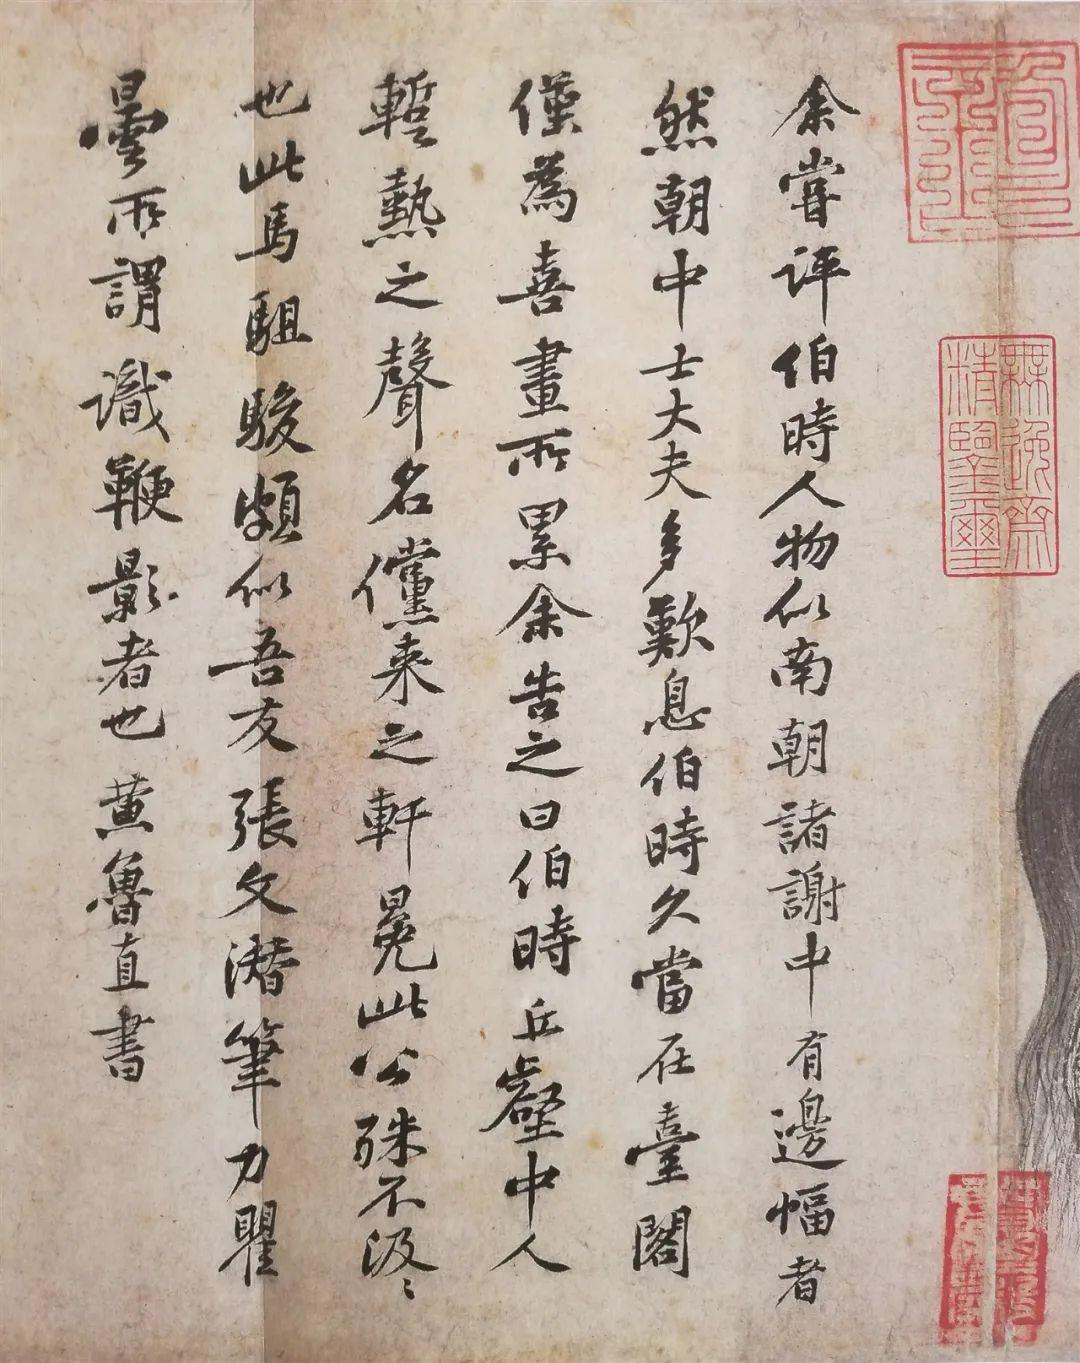 余嘗評伯時人物似南朝諸謝中有邊幅者
然朝中士大夫多歎息伯時久當在臺閣
僅為喜畫所累余告之曰伯時丘壑中人
蹔熱之聲名儻来之軒冕此公殊不汲〻
也此馬駔駿頗似吾友張文潛筆力瞿
曇所謂識鞭影者也黃魯直書